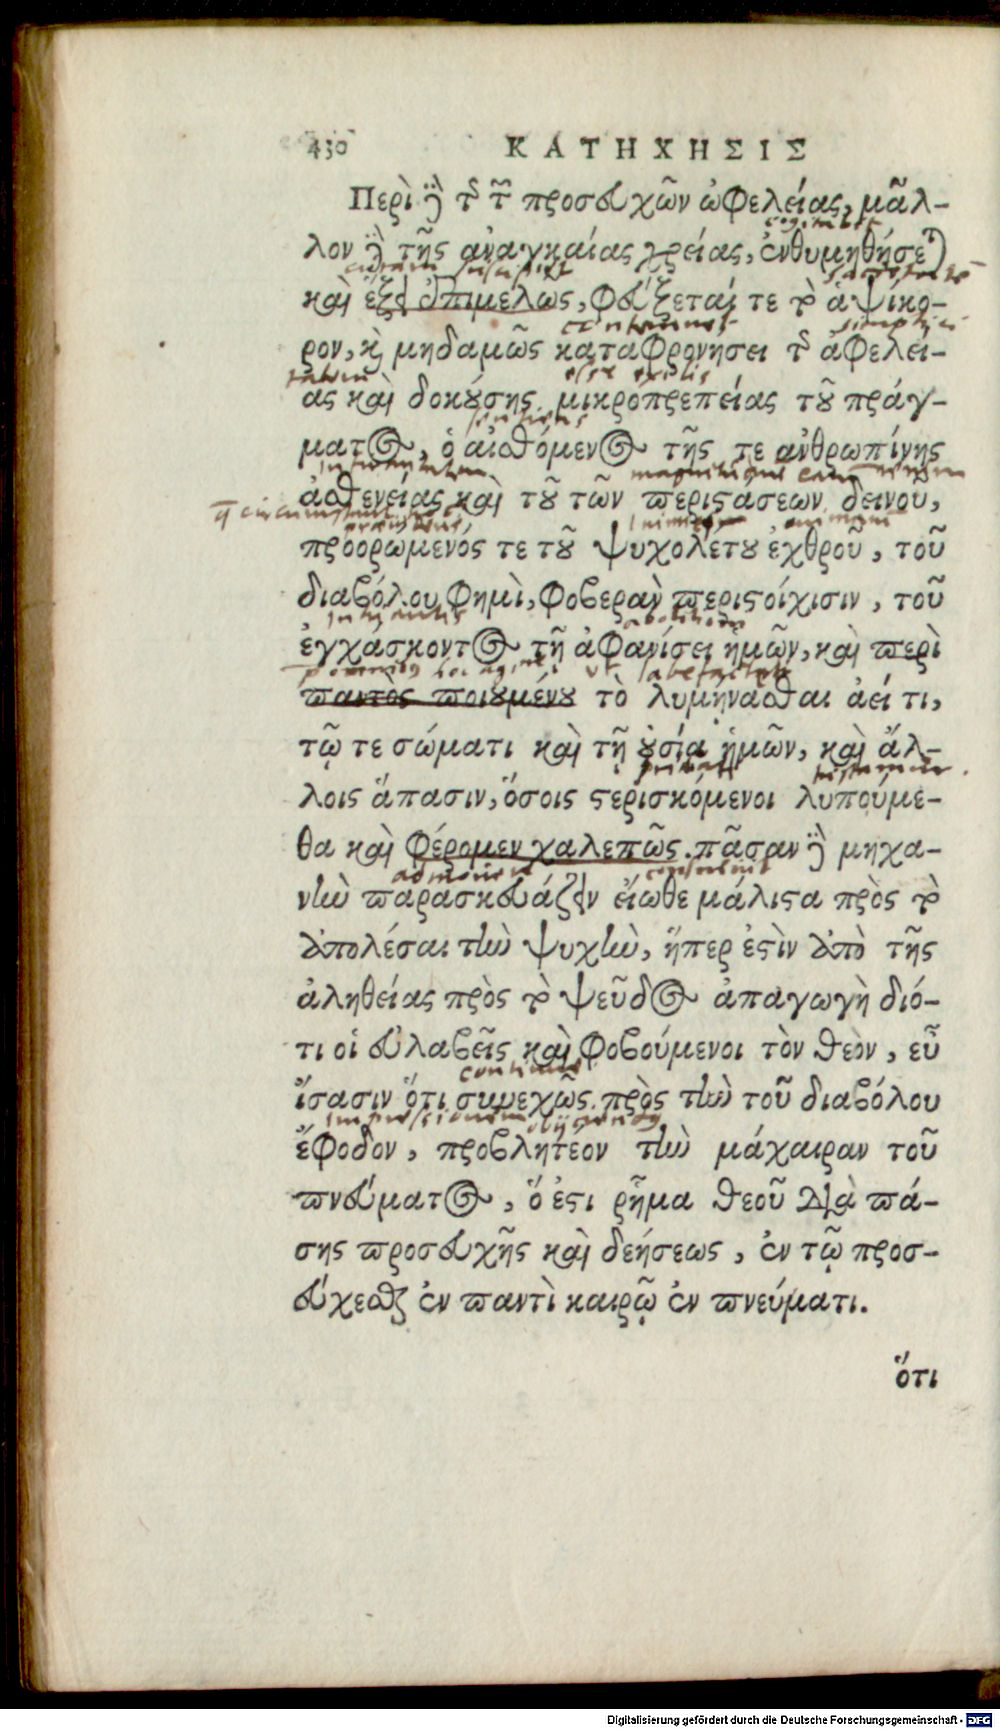 430 ΚΑΤΗΧΗΣΙΣ
Περὶ δὲ τῆς τῶν προσευχῶν ὠφελείας, μᾶλ-
λον δὲ τῆς ἀναγκαίας χρείας, ἐνθυμηθήσεται
cogitabit
καὶ ἕξει ἐπιμελῶς, φεύξεταί τε τὸ ἁψίκο-
curam suscipiet
ρον, καὶ μηδαμῶς καταφρονήσει τῆς ἀφελεί-
contemnet simplici
ας καὶ δοκούσης μικροπρεπείας τοῦ πράγ-
tatem exilis
ματος, ὁ αἰσθόμενος τῆς τε ἀνθρωπίνης
sentiens
ἀσθενείας καὶ τοῦ τῶν περιστάσεων δεινοῦ,
προορώμενός τε τοῦ ψυχολέτου ἐχθροῦ, τοῦ
animam
διαβόλου φημὶ, φοβερὰν περιστοίχισιν, τοῦ
ἐγχάσκοντος τῇ ἀφανίσει ἡμῶν, καὶ περὶ
παντὸς ποιουμένου τὸ λυμήνασθαι ἀεί τι,
ut labefactet
τῷ τε σώματι καὶ τῇ οὐσίᾳ ἡμῶν, καὶ ἄλ-
λοις ἅπασιν, ὅσοις στερισκόμενοι λυπούμε-
privati
θα καὶ φέρομεν χαλεπῶς. πᾶσαν δὲ μηχα-
νὴν παρασκευάζειν εἴωθε μάλιστα πρὸς τὸ
ἀπολέσαι τὴν ψυχὴν, ἥπερ ἐστὶν ἀπὸ τῆς
ἀληθείας πρὸς τὸ ψεῦδος ἀπαγωγὴ διό-
τι οἱ εὐλαβεῖς καὶ φοβούμενοι τὸν θεὸν, εὖ
ἴσασιν ὅτι συνεχῶς πρὸς τὴν τοῦ διαβόλου
continue
ἔφοδον, προβλητέον τὴν μάχαιραν τοῦ
impressionem
πνεύματος, ὅ ἐστι ῥῆμα θεοῦ διὰ πά-
σης προσευχῆς καὶ δεήσεως, ἐν τῷ προσ-
εύχεσθαι ἐν παντὶ καιρῷ ἐν πνεύματι.
ὅτι
Digitalisierung gefördert durch die Deutsche Forschungsgemeinschaft - DFG